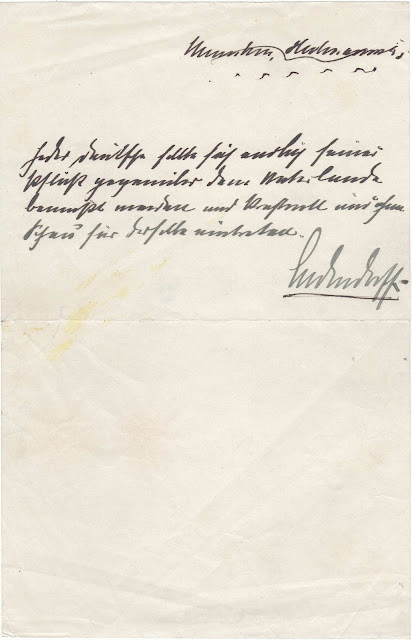 München,
Jeder Deutsche sollte sich endlich seiner
Pflicht gegenüber dem Vaterlande
bewußt werden und kraftvoll und ohne
Scheu für dasselbe eintreten.
Ludendorff